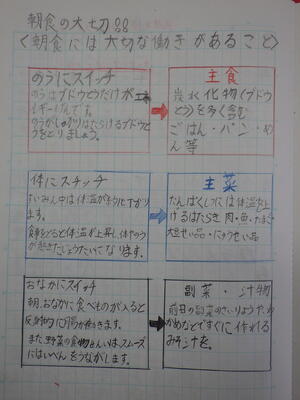 朝食の大切さ
〈朝食には大切な働きがあること〉
のうにスイッチ
のうはブドウとうだけがエネル
ギーげんです。
のうがしっかりはたらけるブドウと
うをとりましょう。
主食
炭水化物(ブドウ
とう)を多く含む
ごはん・パン・め
ん等
体にスイッチ
たいみん中は体温が下がり
ます。
食事をとると体温が上昇し、体やのう
が起きたじょうたいになります。
主菜
たんぱくしつには体温を上
げるはたらき 肉・魚・たまご
大豆せい品・にゅうせい品
おなかにスイッチ
朝、おなかに食べものが入ると
反射的に腸が動きます。
また、野菜の食物せんいはスムーズ
にはいべんをうながします。
副菜・汁物
前日の副菜のざいりょう
わかめなどですぐに作れる
みそ汁を。